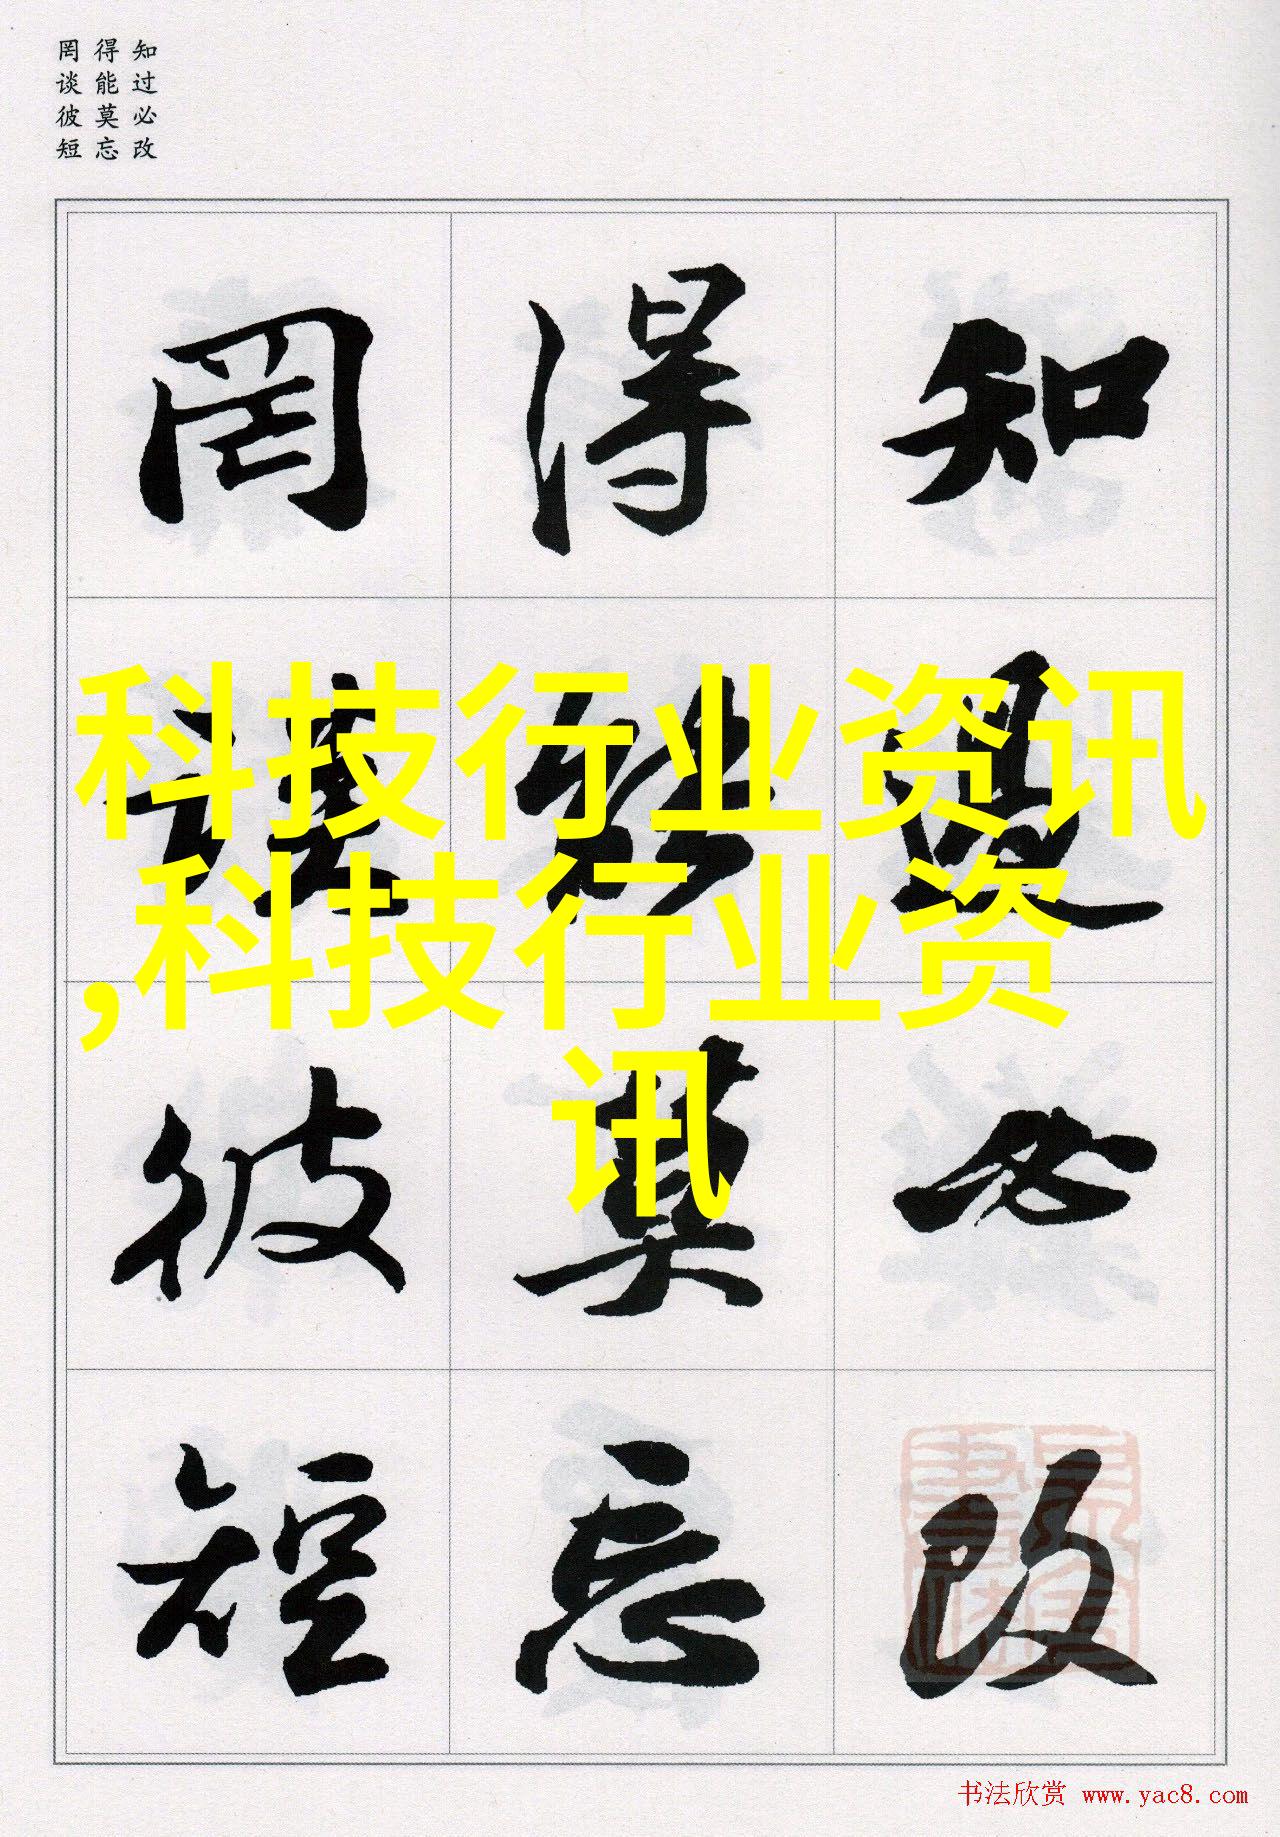 知过必改
得能莫忘
罔谈彼短
知過必改
得能莫忘
罔談彼短
科技行业资讯
,科技行业资
讯
书法欣赏 www.yac8.com